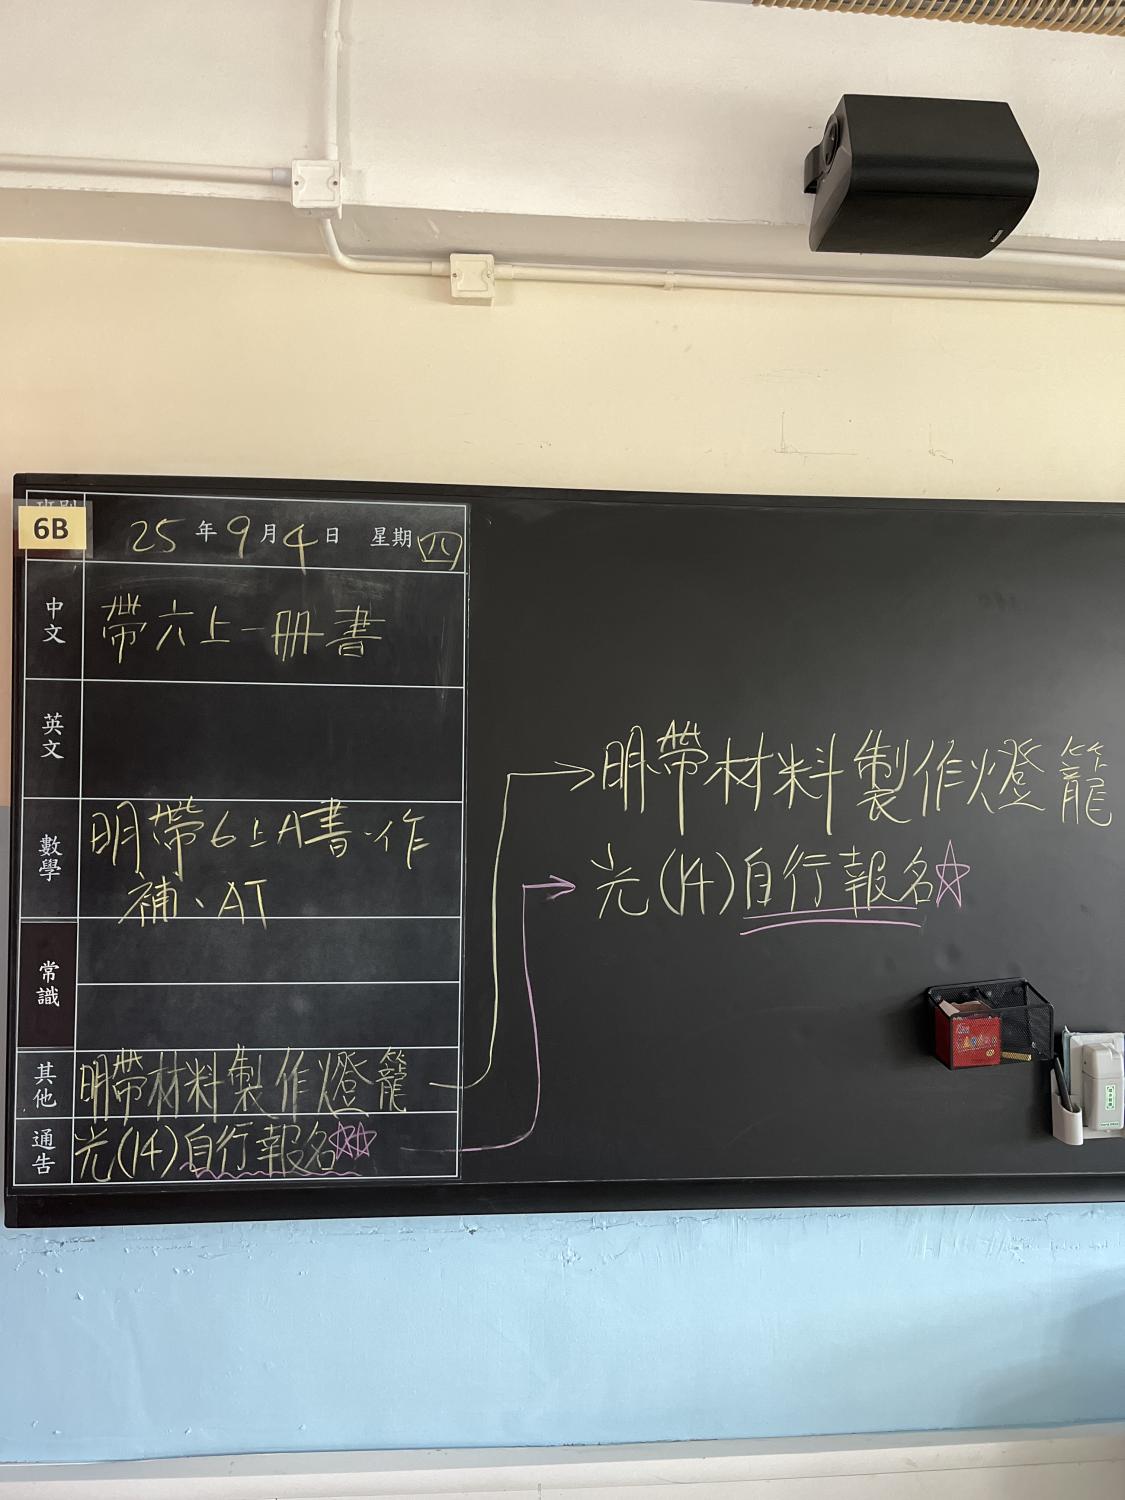 班別
6B
25年9月4日 星期四
中文
帶六上一冊書
英文
數學
明帶6上A書、作
補、AT
常識
其他
明帶材料製作燈籠
通告
光(14)自行報名☆☆
明帶材料製作燈籠
光(14)自行報名☆